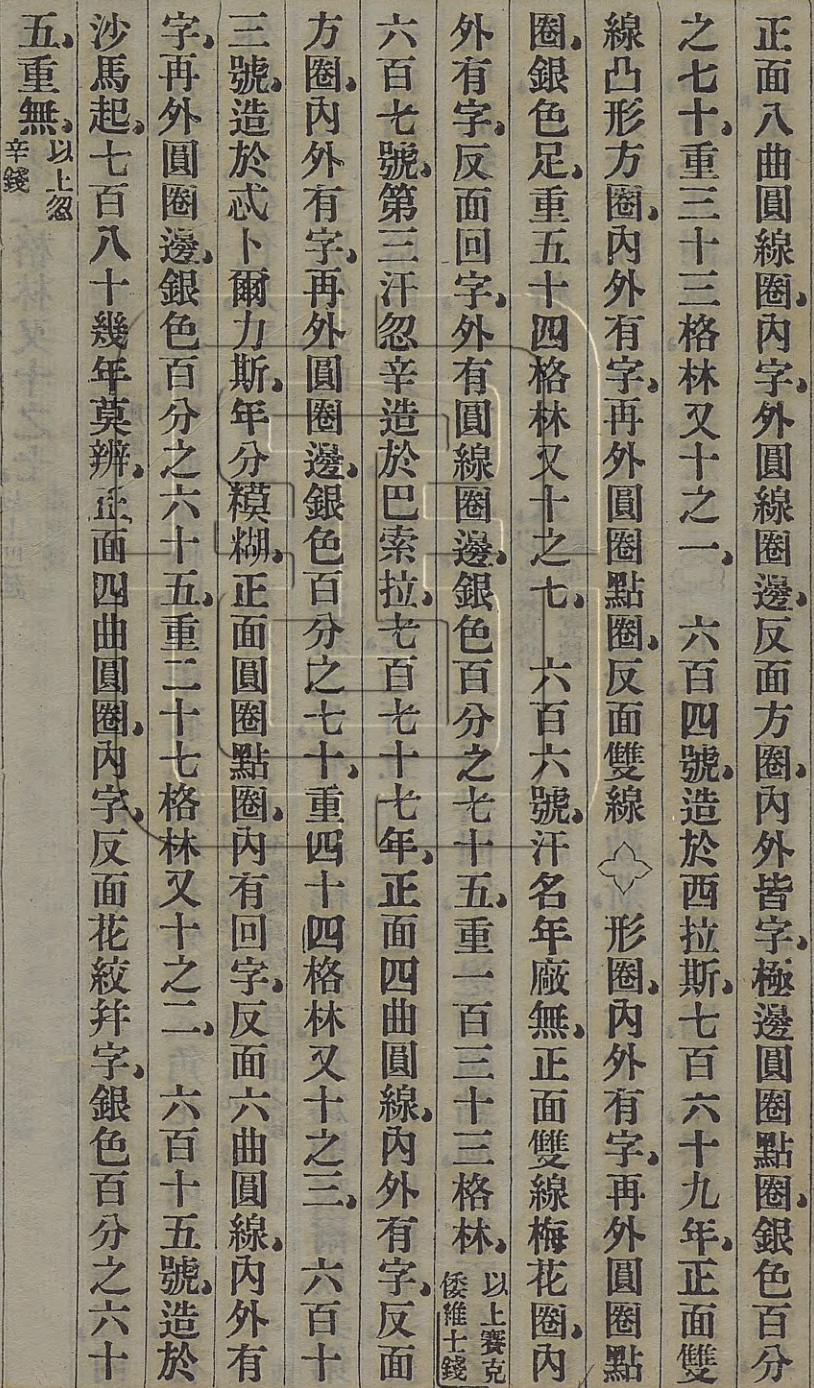 正面八曲圓線圈、內字、外圓線圈邊、反面方圈、內外皆字、極邊圓圈點圈、銀色百分
之七十、重三十三格林又十之一、 六百四號、造於西拉斯、七百六十九年、正面雙
線凸形方圈、內外有字、再外圓圈點圈、反面雙線 形圈、內外有字、再外圓圈點
圈、銀色足、重五十四格林又十之七、 六百六號、汗名年廠無、正面雙線梅花圈、內
外有字、反面回字、外有圓線圈邊、銀色百分之七十五、重一百三十三格林、以上賽克倭維士錢
六百七號、第三汗忽辛造於巴索拉、七百七十七年、正面四曲圓線、內外有字、反面
方圈、內外有字、再外圓圈邊、銀色百分之七十、重四十四格林又十之三、 六百十
三號、造於忒卜爾力斯、年分糢糊、正面圓圈點圈、內有回字、反面六曲圓線、內外有
字、再外圓圈邊、銀色百分之六十五、重二十七格林又十之二、 六百十五號、造於
沙馬起、七百八十幾年莫辨、正面四曲圓圈、內字、反面花紋幷字、銀色百分之六十
五、重無、以上忽辛錢